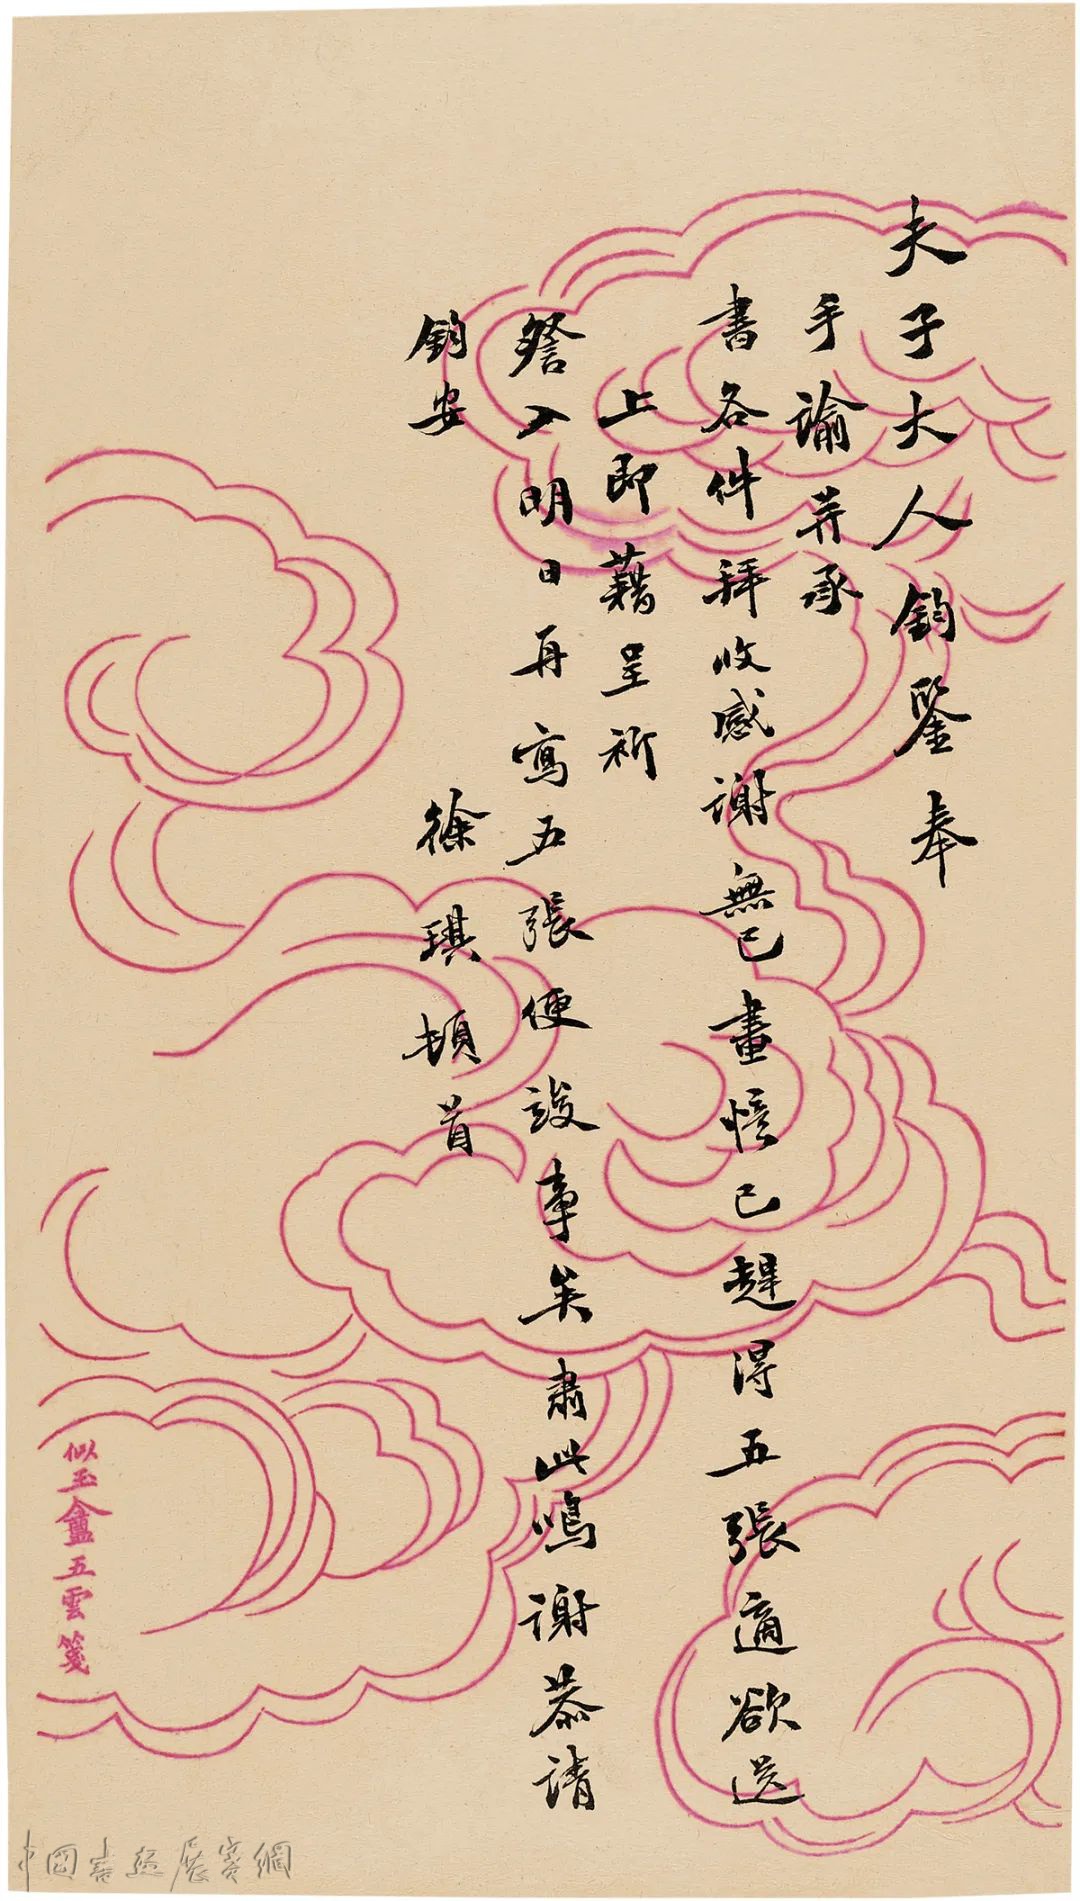 夫子大人鈞鑒奉
手諭并承
書各件拜收感謝無已畫愔已趕得五張適欲送
上即藉呈祈
詧入明日再寫五張便竣事矣肅此鳴謝恭請
鈞安
徐琪頓首
似玉盦五雲箋
中国書法展賽網